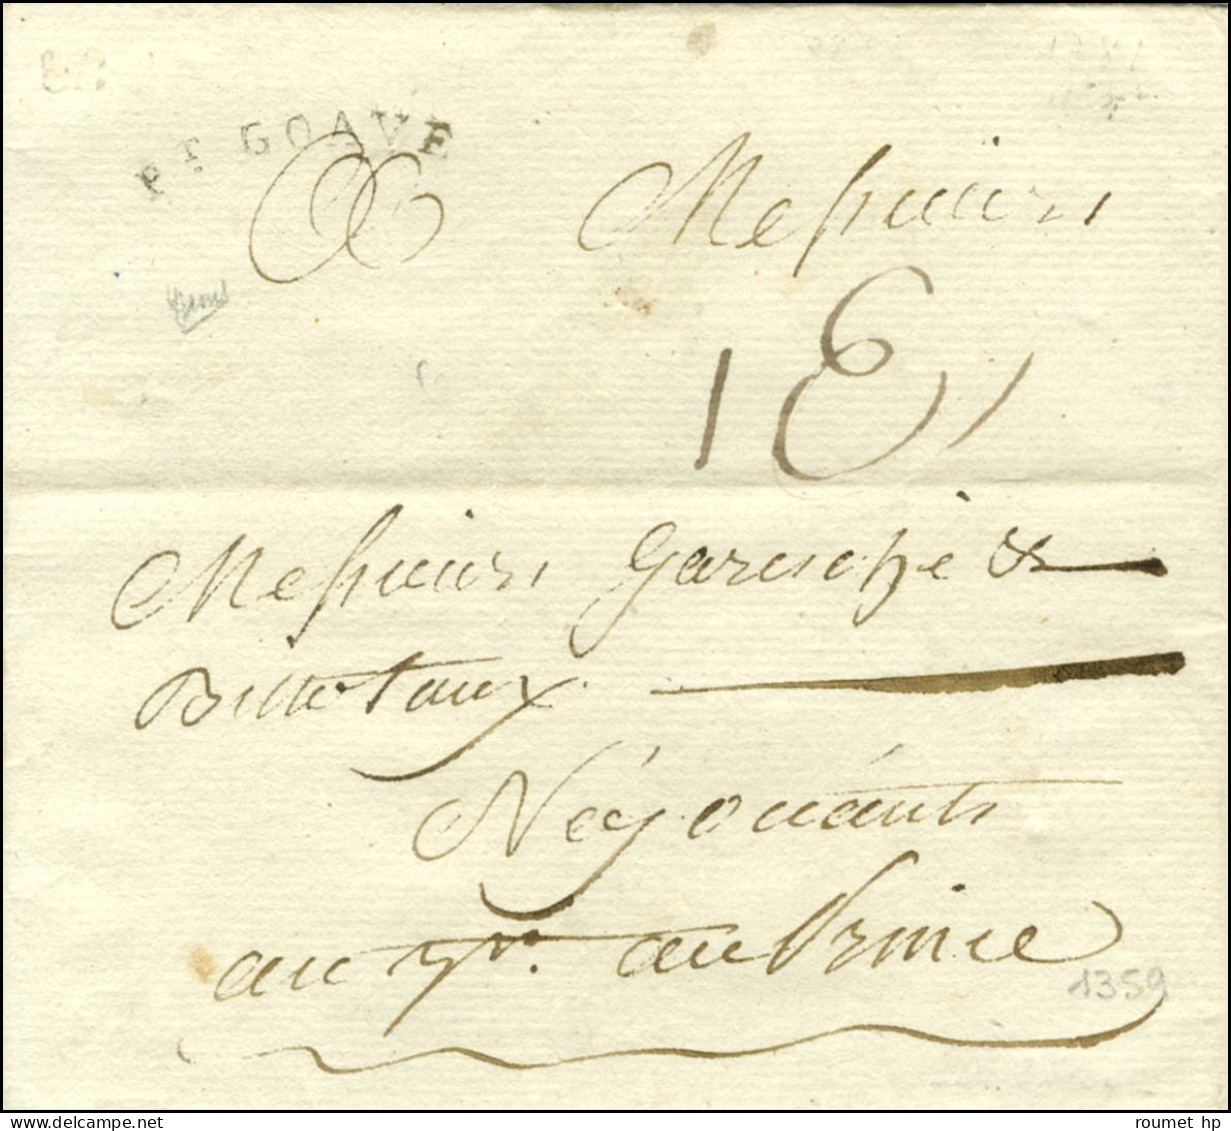 Pt. GOAVE
Messieurs
Messieurs Garesché &
Billotaux
Négociants
au Pt. au Prince
1359
roumet hp